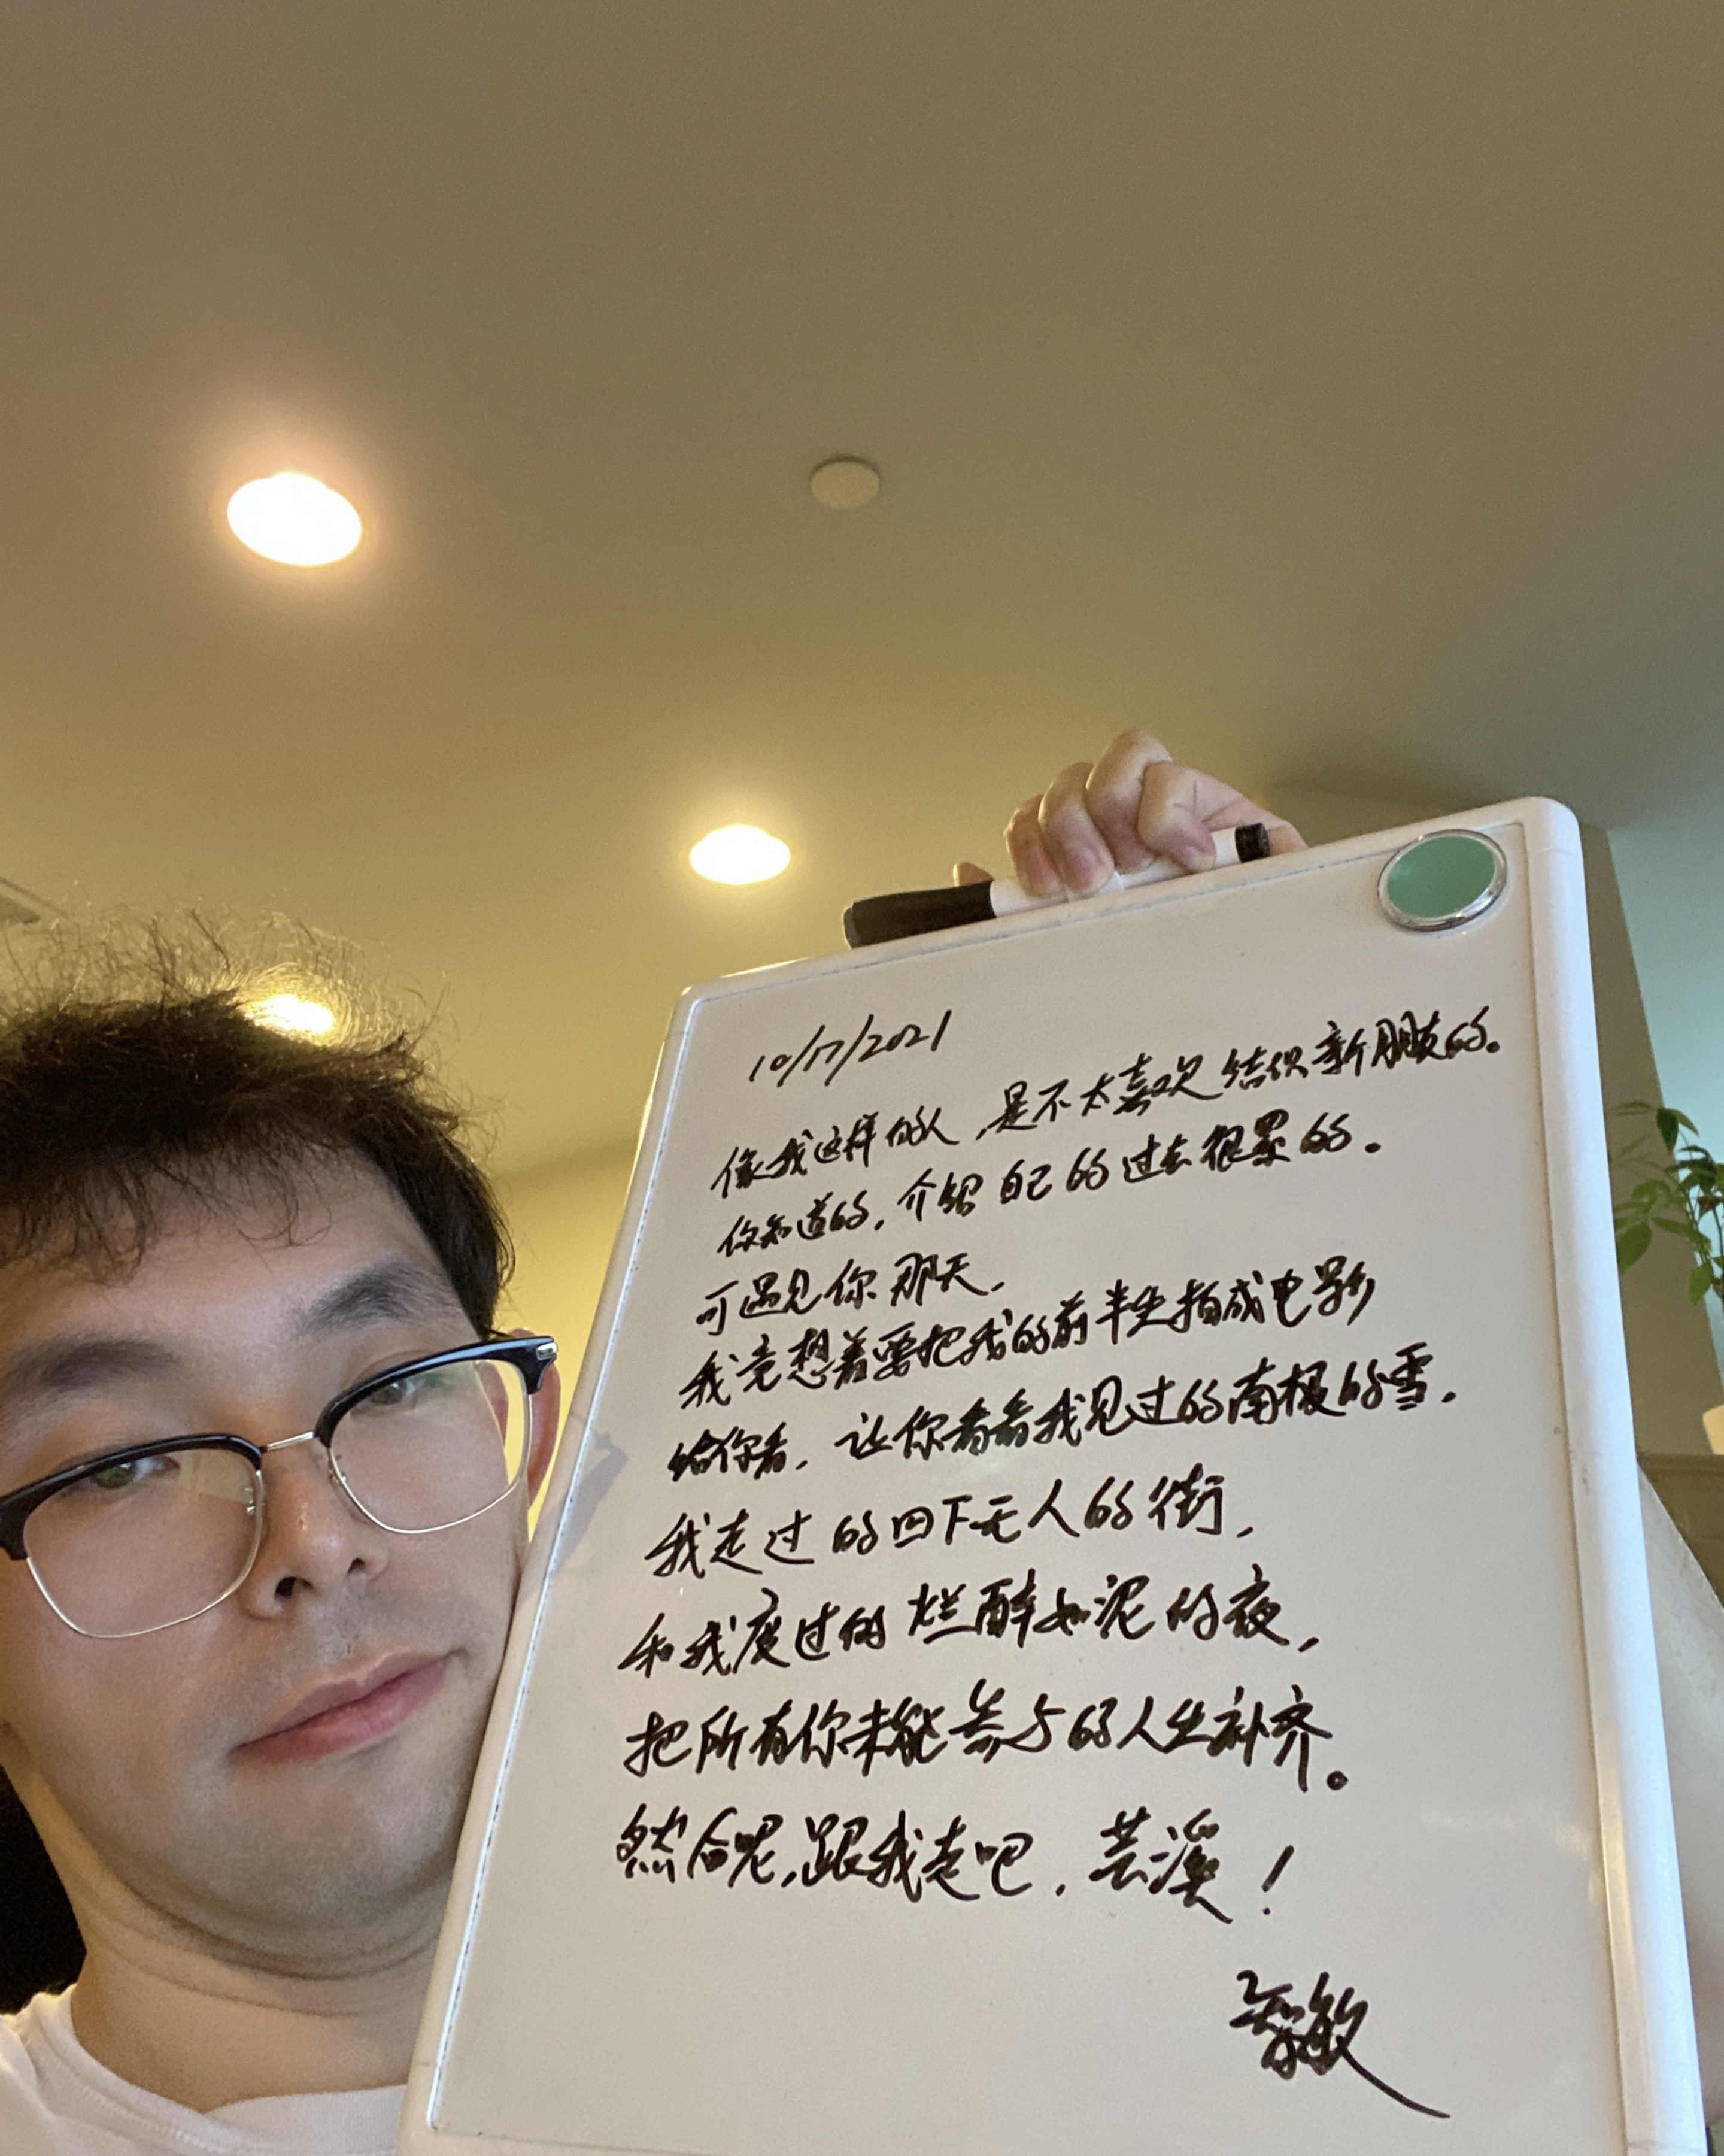 10/17/2021
像我这样的人，是不太喜欢结识新朋友的。
你知道的，介绍自己的过去很累的。
可遇见你那天，
我竟想着要把我的前半生拍成电影
给你看，让你看看我见过的南极的雪，
我走过的四下无人的街，
和我度过的烂醉如泥的夜，
把所有你未能参与的人生补齐。
然后呢，跟我走吧，芸溪！